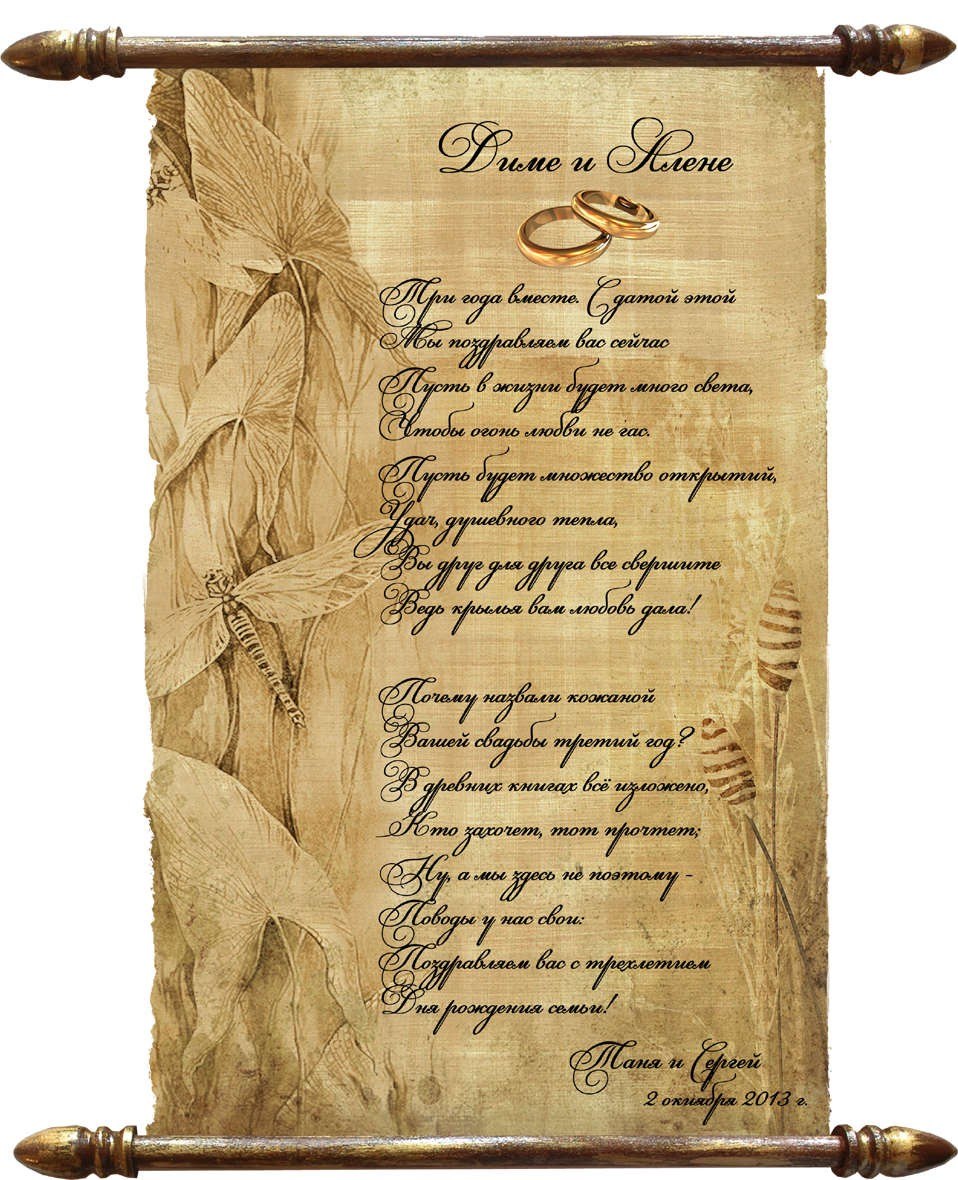 Диме и Алене
Три года вместе. С датой этой
Мы поздравляем вас сейчас
Пусть в жизни будет много света,
Чтобы огонь любви не гас.
Пусть будет множество открытий,
Удач, душевного тепла,
Вы друг для друга все свершите
Ведь крылья вам любовь дала!
Почему назвали кожаной
Вашей свадьбы третий год?
В древних книгах всё изложено,
Кто захочет, тот прочтет;
Ну, а мы здесь не поэтому -
Поводы у нас свои:
Поздравляем вас с трехлетием
Дня рождения семьи!
Таня и Сергей
2 октября 2013 г.